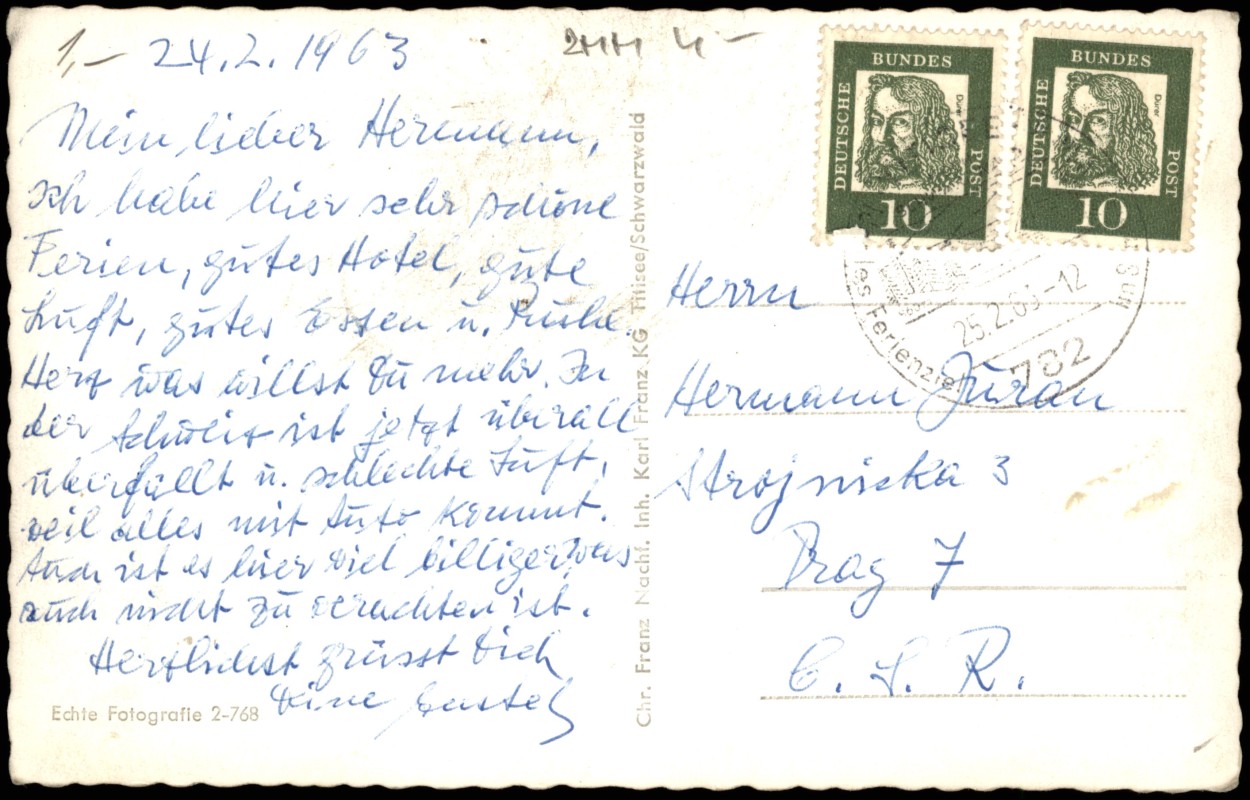 1,– 24.2.1963
Mein lieber Hermann,
ich habe hier sehr schöne
Ferien, gutes Hotel, gute
Luft, gutes Essen u. Ruhe.
Herz was willst Du mehr. In
der Schweiz ist jetzt überall
überfüllt u. schlechte Luft,
weil alles mit Auto kommt.
Auch ist es hier viel billiger, was
auch nicht zu verachten ist.
Herzlichst grüsst Dich
Deine
Echte Fotografie 2-768
Chr. Franz Nachf. Inh. Karl Franz KG Titisee/Schwarzwald
DEUTSCHE BUNDES POST
Dürer
10
DEUTSCHE BUNDES POST
Dürer
10
25.2.63-12
Ferienziel
782
Herrn
Hermann Juran
Strojnicka 3
Prag 7
C. S. R.